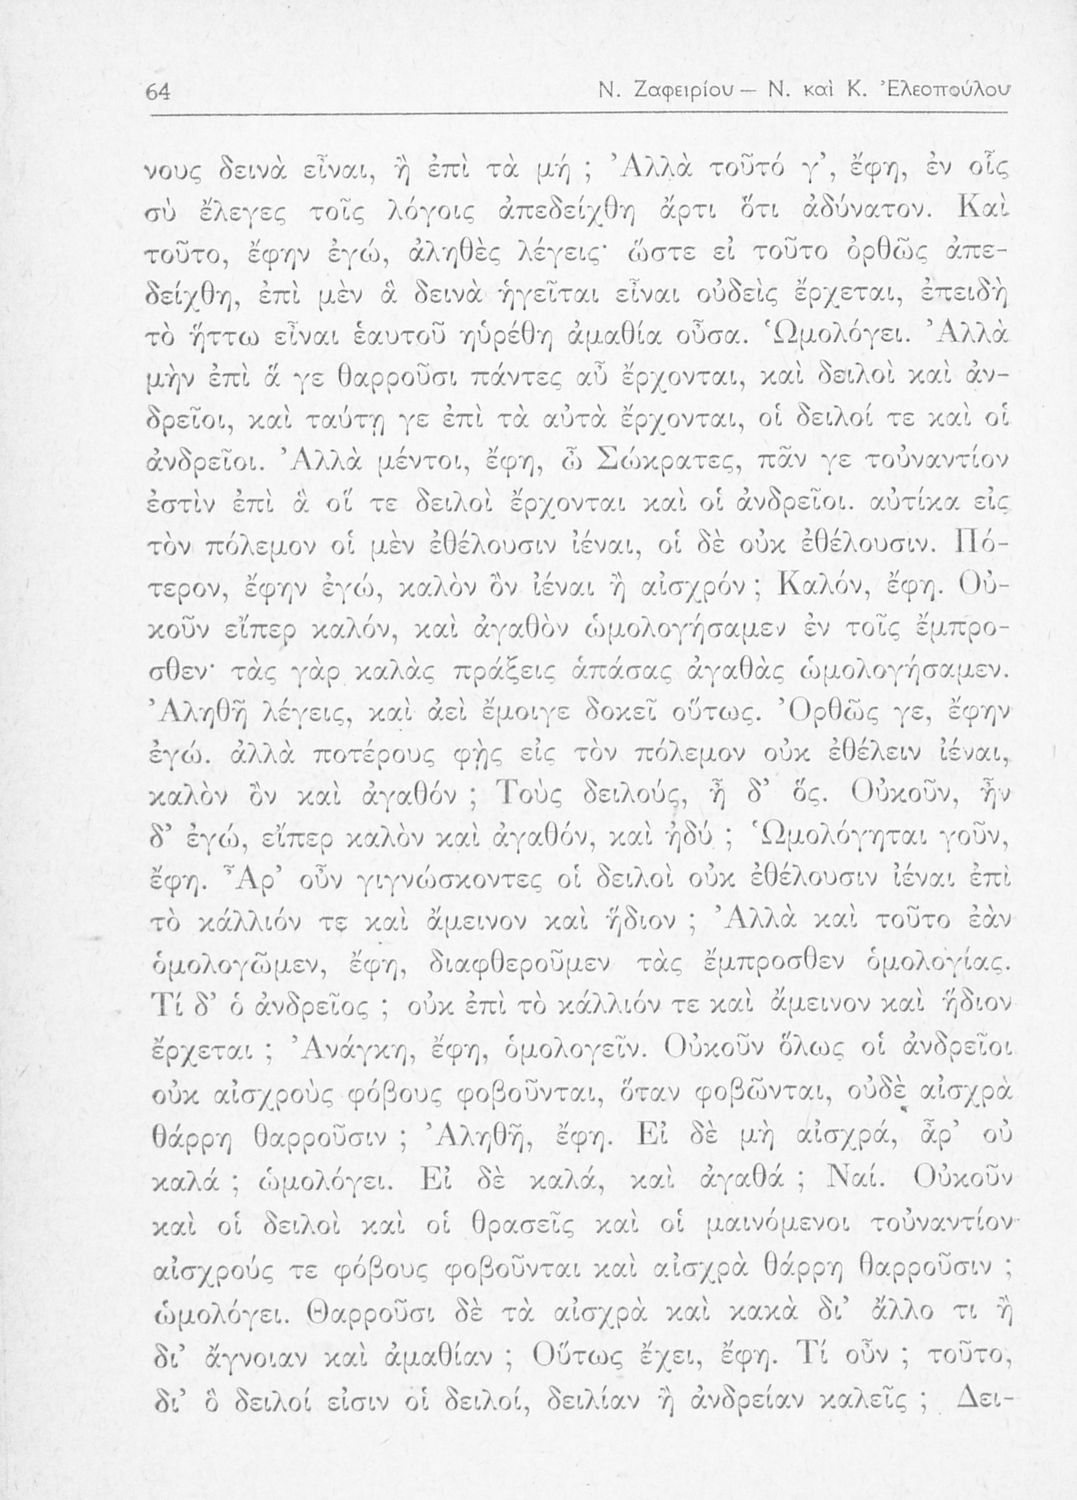 64 Ν. Ζαφειρίου — Ν. καὶ Κ. Ἐλεοπούλου
νους δεινὰ εἶναι, ἢ ἐπὶ τὰ μή ; Ἀλλὰ τοῦτό γ’, ἔφη, ἐν οἷς
σὺ ἔλεγες τοῖς λόγοις ἀπεδείχθη ἄρτι ὅτι ἀδύνατον. Καὶ
τοῦτο, ἔφην ἐγώ, ἀληθὲς λέγεις· ὥστε εἰ τοῦτο ὀρθῶς ἀπε-
δείχθη, ἐπὶ μὲν ἃ δεινὰ ἡγεῖται εἶναι οὐδεὶς ἔρχεται, ἐπειδὴ
τὸ ἥττω εἶναι ἑαυτοῦ ηὑρέθη ἀμαθία οὖσα. Ὡμολόγει. Ἀλλὰ
μὴν ἐπὶ ἅ γε θαρροῦσι πάντες αὖ ἔρχονται, καὶ δειλοὶ καὶ ἀν-
δρεῖοι, καὶ ταύτῃ γε ἐπὶ τὰ αὐτὰ ἔρχονται, οἱ δειλοί τε καὶ οἱ
ἀνδρεῖοι. Ἀλλὰ μέντοι, ἔφη, ὦ Σώκρατες, πᾶν γε τοὐναντίον
ἐστὶν ἐπὶ ἃ οἵ τε δειλοὶ ἔρχονται καὶ οἱ ἀνδρεῖοι. αὐτίκα εἰς
τὸν πόλεμον οἱ μὲν ἐθέλουσιν ἰέναι, οἱ δὲ οὐκ ἐθέλουσιν. Πό-
τερον, ἔφην ἐγώ, καλὸν ὂν ἰέναι ἢ αἰσχρόν ; Καλόν, ἔφη. Οὐ-
κοῦν εἴπερ καλόν, καὶ ἀγαθὸν ὡμολογήσαμεν ἐν τοῖς ἔμπρο-
σθεν· τὰς γὰρ καλὰς πράξεις ἁπάσας ἀγαθὰς ὡμολογήσαμεν.
Ἀληθῆ λέγεις, καὶ ἀεὶ ἔμοιγε δοκεῖ οὕτως. Ὀρθῶς γε, ἔφην
ἐγώ. ἀλλὰ ποτέρους φῂς εἰς τὸν πόλεμον οὐκ ἐθέλειν ἰέναι,
καλὸν ὂν καὶ ἀγαθόν ; Τοὺς δειλούς, ἦ δ’ ὅς. Οὐκοῦν, ἦν
δ’ ἐγώ, εἴπερ καλὸν καὶ ἀγαθόν, καὶ ἡδύ ; Ὡμολόγηται γοῦν,
ἔφη. Ἆρ’ οὖν γιγνώσκοντες οἱ δειλοὶ οὐκ ἐθέλουσιν ἰέναι ἐπὶ
τὸ κάλλιόν τε καὶ ἄμεινον καὶ ἥδιον ; Ἀλλὰ καὶ τοῦτο ἐὰν
ὁμολογῶμεν, ἔφη, διαφθεροῦμεν τὰς ἔμπροσθεν ὁμολογίας.
Τί δ’ ὁ ἀνδρεῖος ; οὐκ ἐπὶ τὸ κάλλιόν τε καὶ ἄμεινον καὶ ἥδιον
ἔρχεται ; Ἀνάγκη, ἔφη, ὁμολογεῖν. Οὐκοῦν ὅλως οἱ ἀνδρεῖοι
οὐκ αἰσχροὺς φόβους φοβοῦνται, ὅταν φοβῶνται, οὐδὲ αἰσχρὰ
θάρρη θαρροῦσιν ; Ἀληθῆ, ἔφη. Εἰ δὲ μὴ αἰσχρά, ἆρ’ οὐ
καλά ; ὡμολόγει. Εἰ δὲ καλά, καὶ ἀγαθά ; Ναί. Οὐκοῦν
καὶ οἱ δειλοὶ καὶ οἱ θρασεῖς καὶ οἱ μαινόμενοι τοὐναντίον
αἰσχρούς τε φόβους φοβοῦνται καὶ αἰσχρὰ θάρρη θαρροῦσιν ;
ὡμολόγει. Θαρροῦσι δὲ τὰ αἰσχρὰ καὶ κακὰ δι’ ἄλλο τι ἢ
δι’ ἄγνοιαν καὶ ἀμαθίαν ; Οὕτως ἔχει, ἔφη. Τί οὖν ; τοῦτο,
δι’ ὃ δειλοί εἰσιν οἱ δειλοί, δειλίαν ἢ ἀνδρείαν καλεῖς ; Δει-